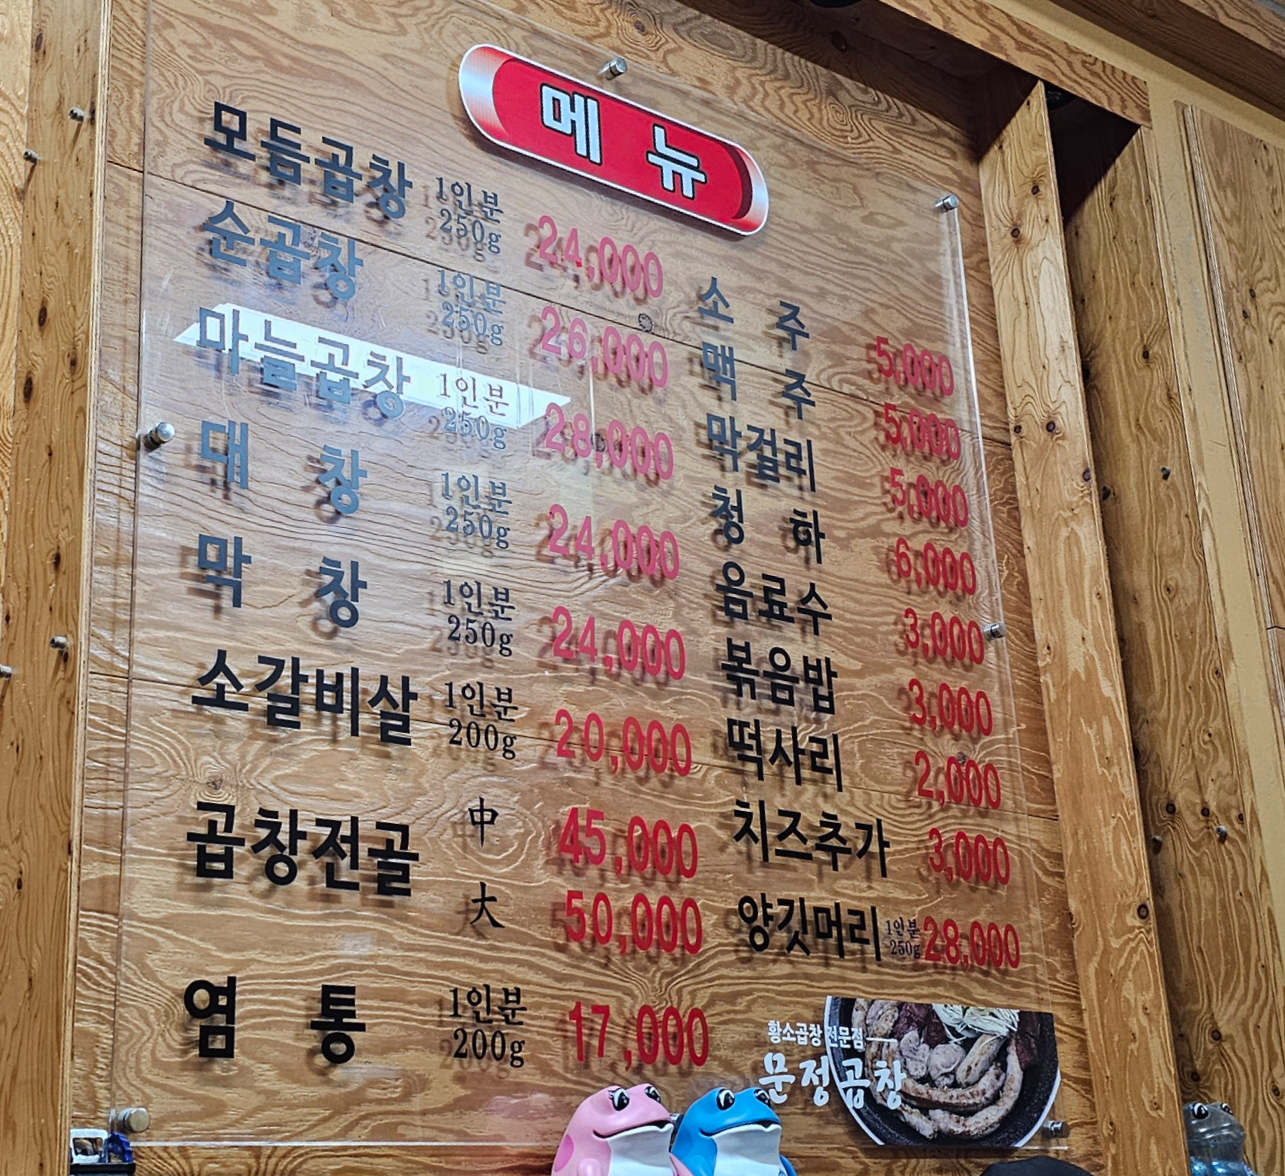 메뉴
모듬곱창 1인분 250g 24,000
순곱창 1인분 250g 26,000
마늘곱창 1인분 250g 28,000
대창 1인분 250g 24,000
막창 1인분 250g 24,000
소갈비살 1인분 200g 20,000
곱창전골 中 45,000
大 50,000
염통 1인분 200g 17,000
소주 5,000
맥주 5,000
막걸리 5,000
청하 6,000
음료수 3,000
볶음밥 3,000
떡사리 2,000
치즈추가 3,000
양깃머리 1인분 250g 28,000
황소곱창 전문점
문정곱창